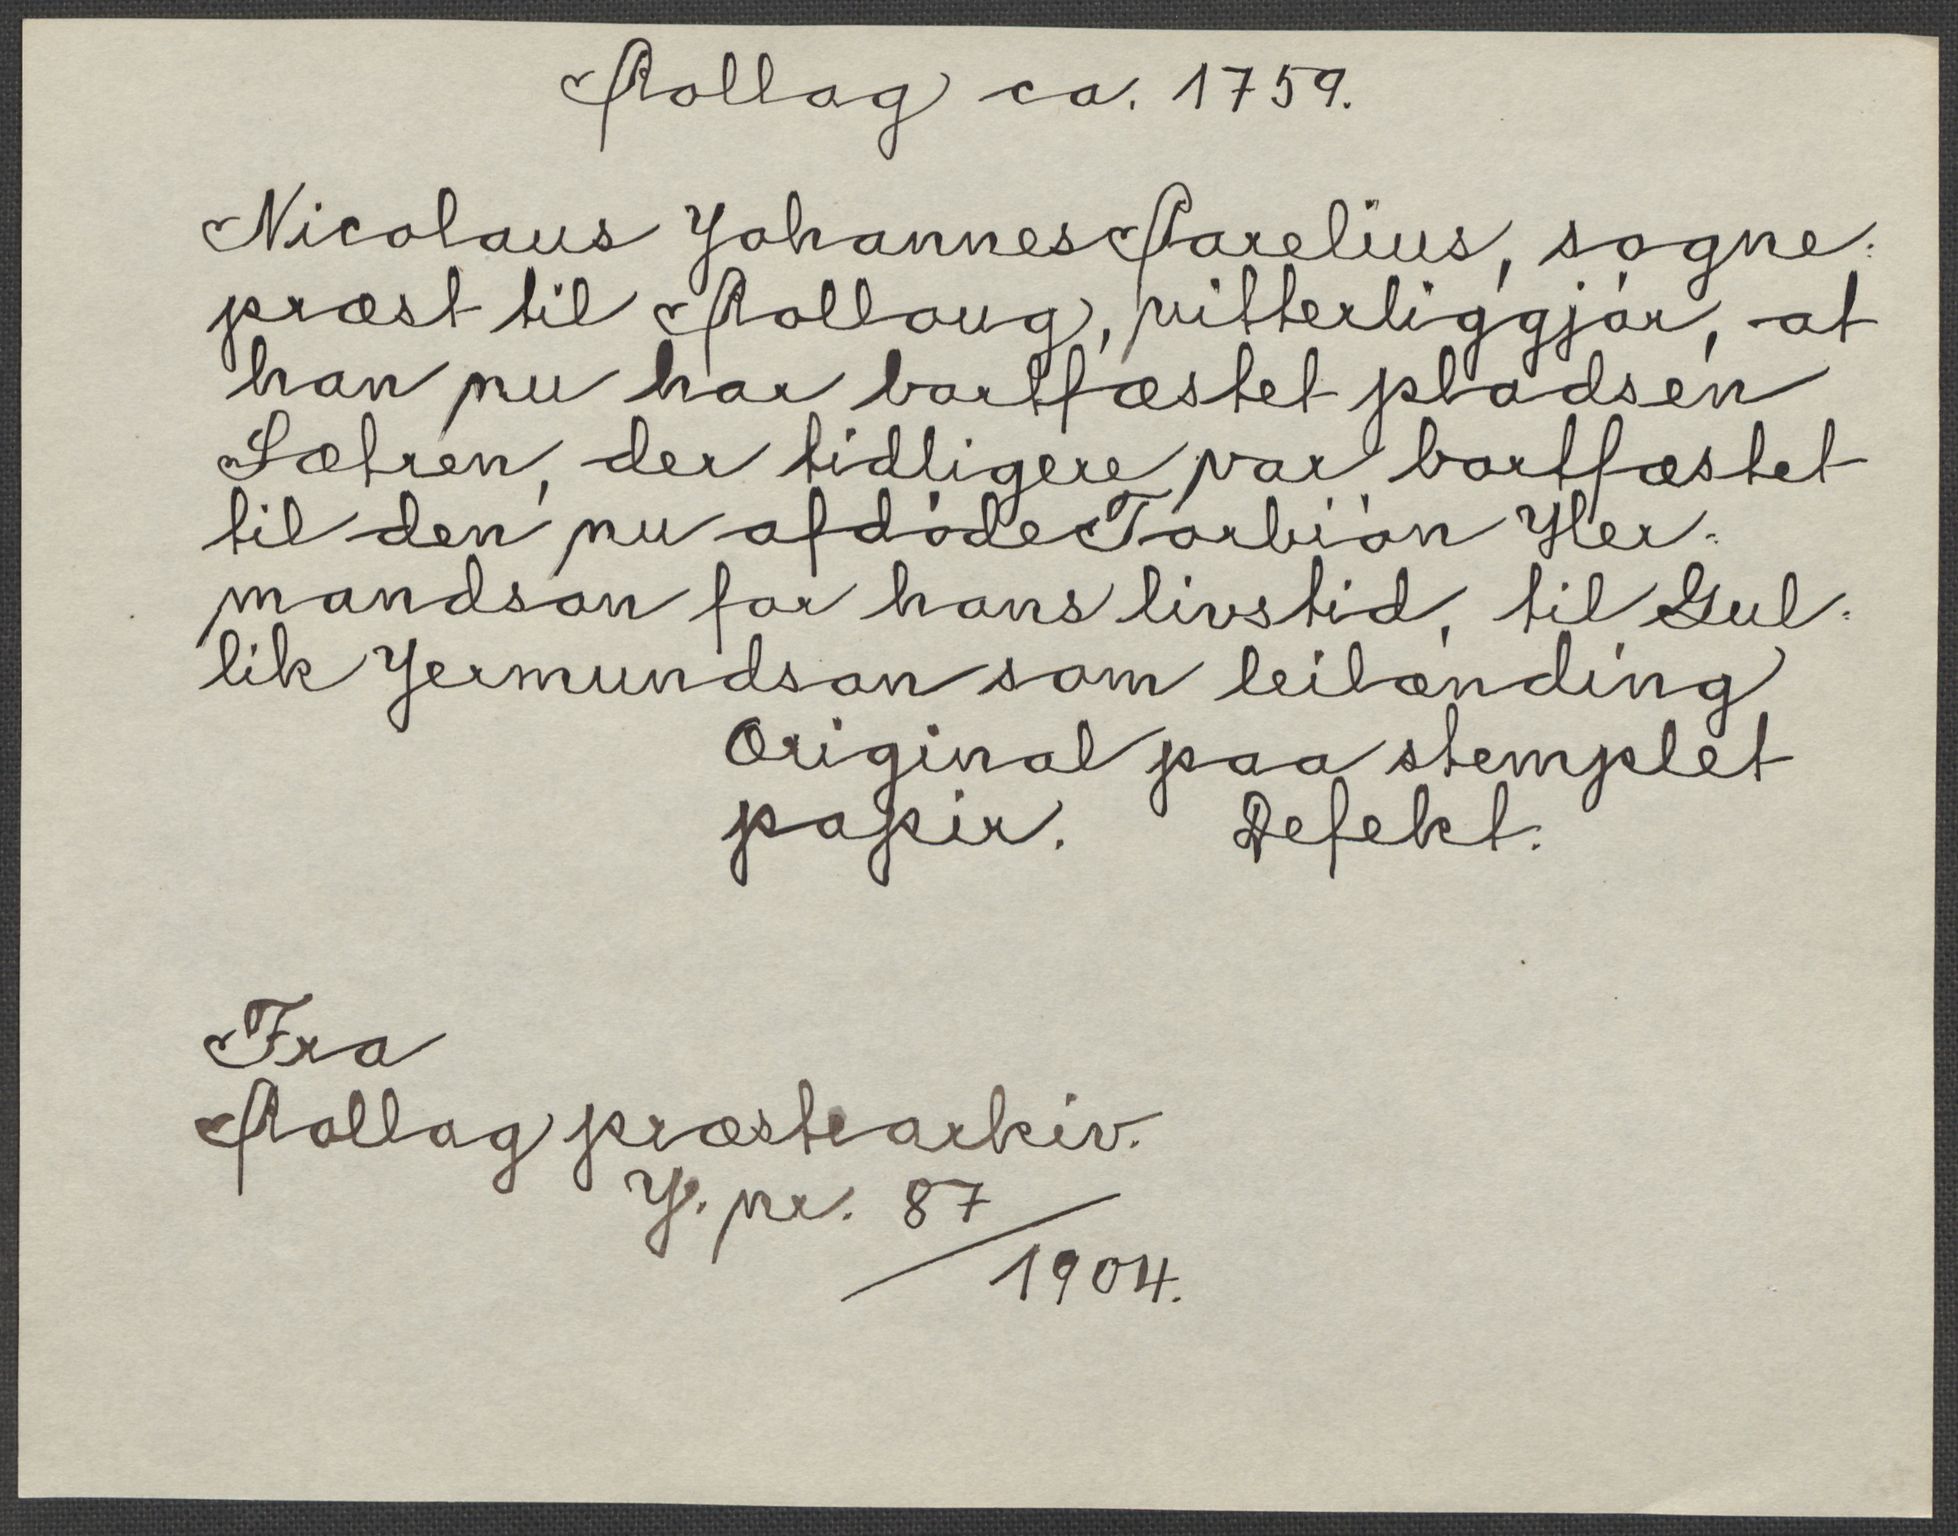 Rollag ca. 1759.
Nicolaus Johannes Parelius, sogne-
præst til Rolloug, vitterliggjör, at
han nu har bortfæstet pladsen
Sætren, der tidligere var bortfæstet
til den nu afdöde Torbiön Her-
mandson for hans livstid, til Gul-
lik Jermundson som leilænding
Original paa stemplet
papir. Defekt.
Fra
Rollag præstearkiv.
J. nr. 87/1904.